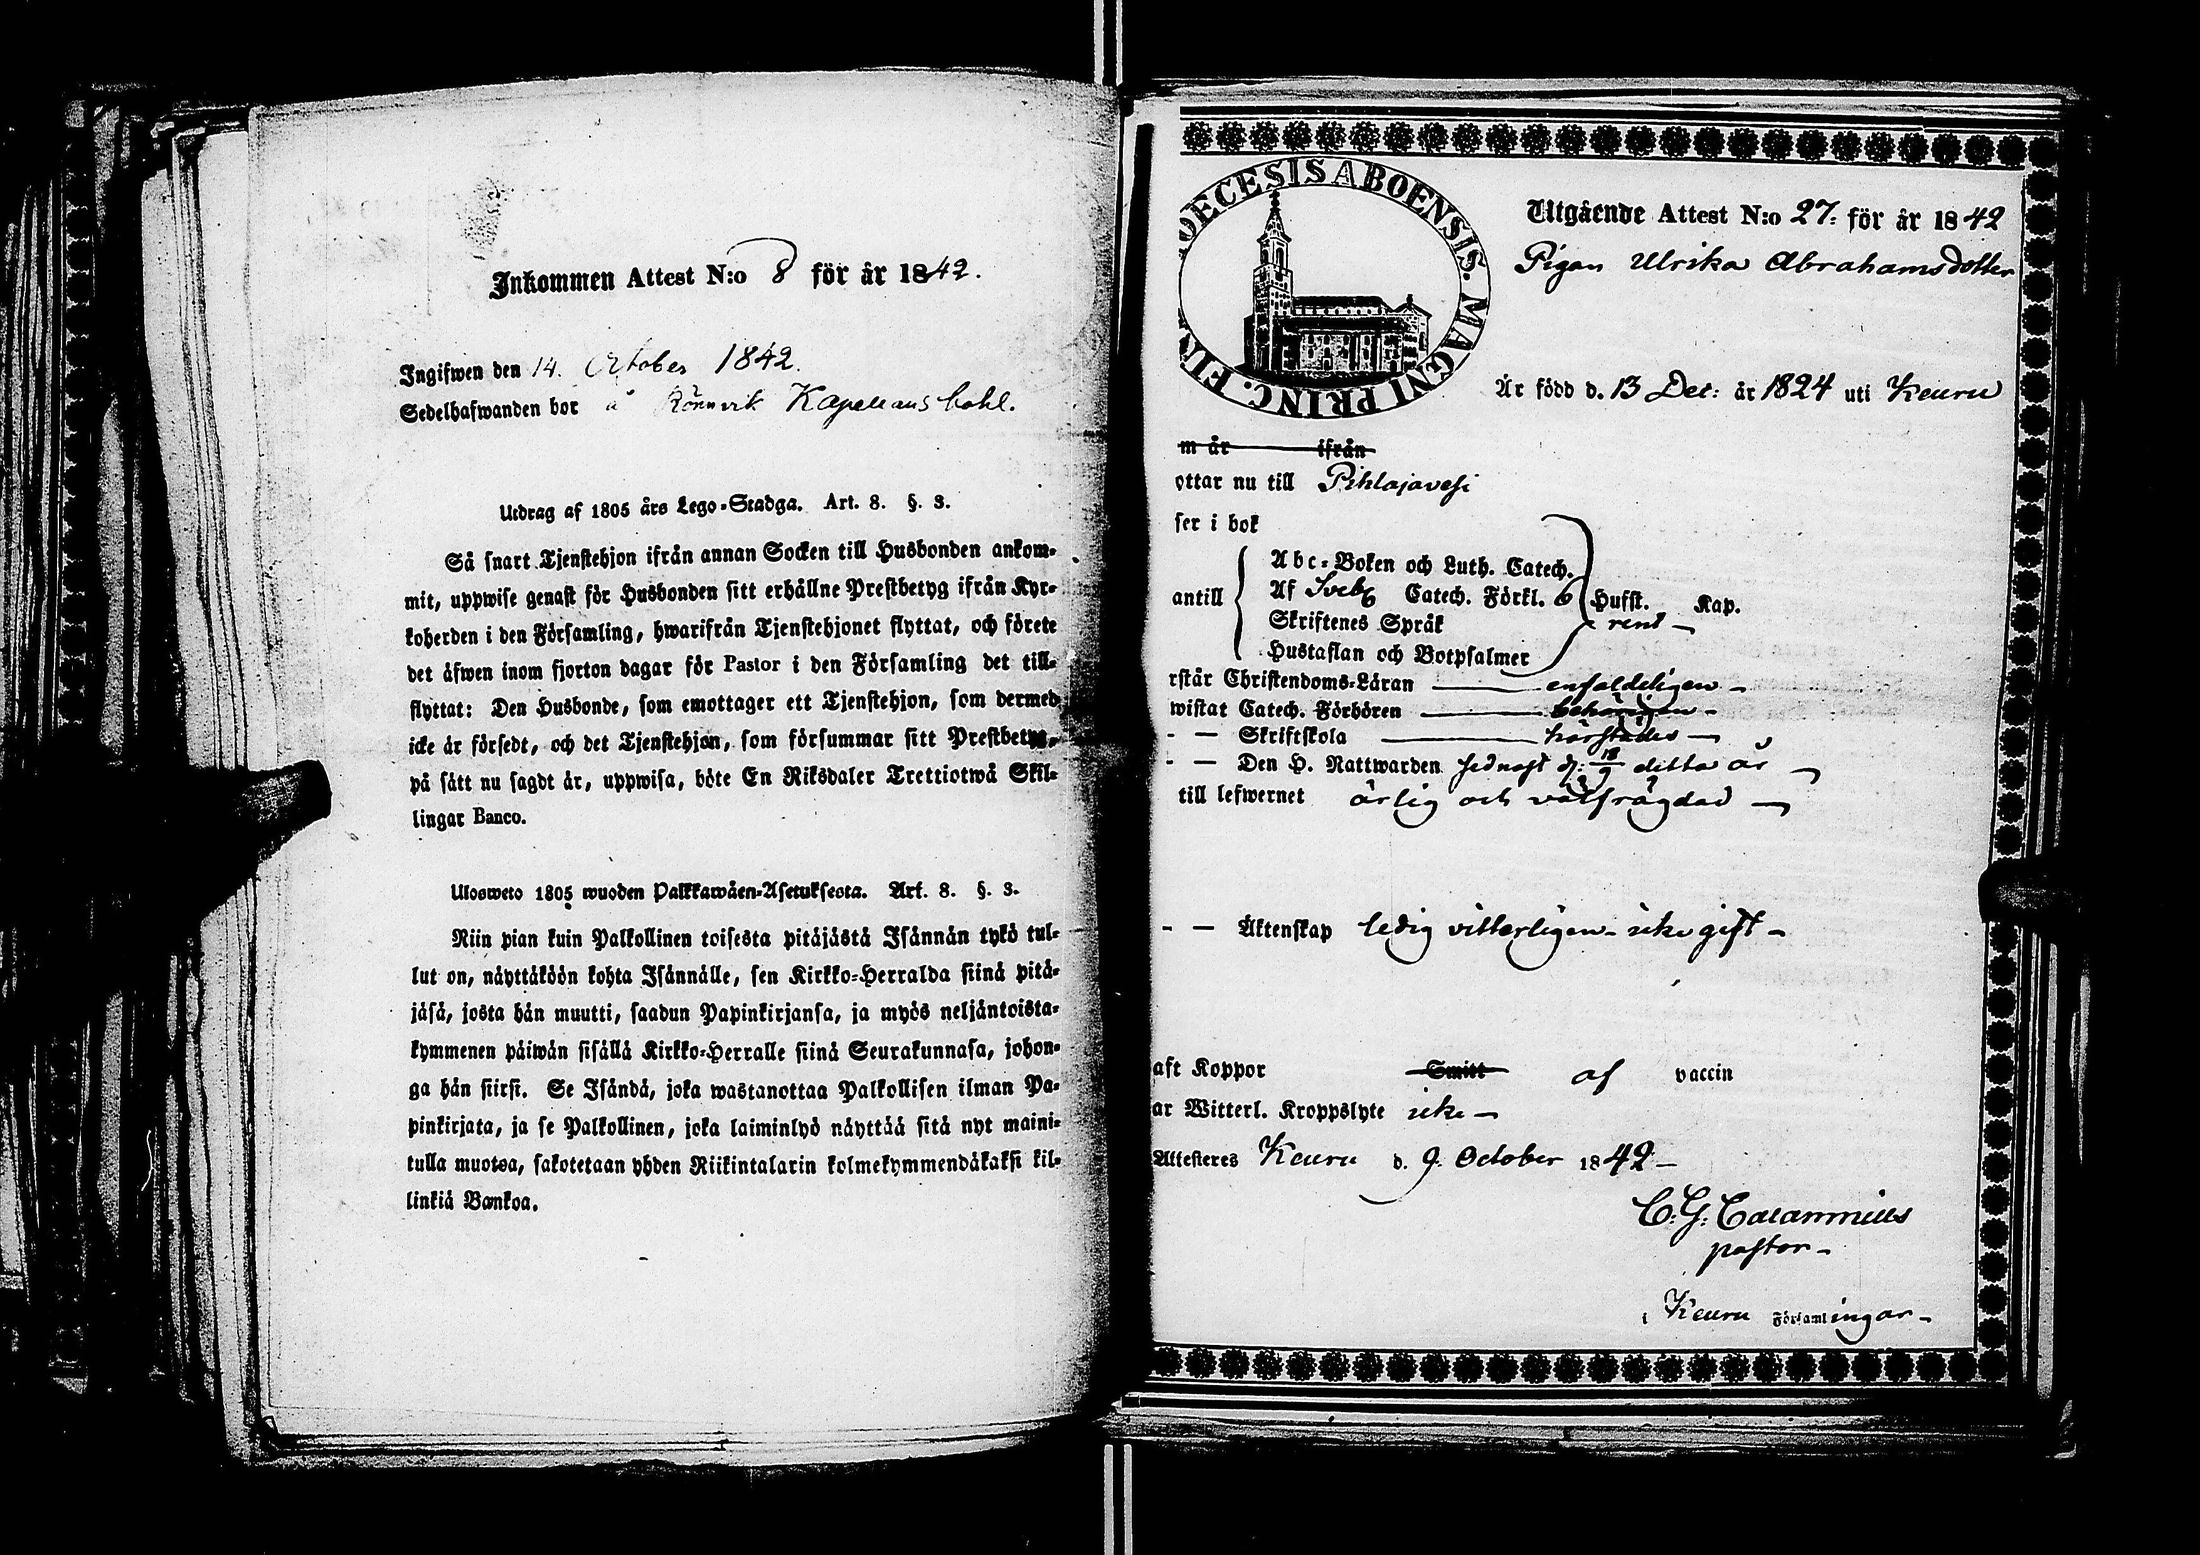 Inkommen Attest N:o 8 för år 1842.
Ingifwen den 14. October 1842.
Sedelhafwanden bor å Rönnvik Kapellans bohl.
Utdrag af 1805 års Lego-Stadga. Art. 8. §. 3.
Så snart Tjenstehjon ifrån annan Socken till Husbonden ankom-
mit, uppwise genast för Husbonden sitt erhållne Prestbetyg ifrån Kyr-
koherden i den Församling, hwarifrån Tjenstehjonet flyttat, och förete
det äfwen inom fjorton dagar för Pastor i den Församling det till-
flyttat: Den Husbonde, som emottager ett Tjenstehjon, som dermed
icke är försedt, och det Tjenstehjon, som försummar sitt Prestbetyg,
på sätt nu sagdt är, uppwisa, böte En Riksdaler Trettiotwå Skil-
lingar Banco.
Ulosweto 1805 wuoden Palkkawäen-Asetuksesta. Art. 8. §. 3.
Niin pian kuin Palkollinen toisesta pitäjästä Isännän tykö tul-
lut on, näyttäköön kohta Isännälle, sen Kirkko-Herralda siinä pitä-
jäsä, josta hän muutti, saadun Papinkirjansa, ja myös neljäntoista-
kymmenen päiwän sisällä Kirkko-Herralle siinä Seurakunnasa, johon-
ga hän siirsi. Se Isändä, joka wastanottaa Palkollisen ilman Pa-
pinkirjata, ja se Palkollinen, joka laiminlyö näyttää sitä nyt maini-
tulla muotoa, sakotetaan yhden Riikintalarin kolmekymmendäkaksi kil-
linkiä Bankoa.
DECESIS ABOENSIS. MAGNI PRINC. FIN
Utgående Attest N:o 27. för år 1842
Pigan Ulrika Abrahamsdotter
Är född d. 13 Dec: år 1824 uti Keuru
m år ifrån
ottar nu till Pihlajavesi
ser i bok
Abc-Boken och Luth. Catech.
antill Af Sveb Catech. Förkl. 6 Hufst. Kap.
Skriftenes Språk rent
Hustaflan och Botpsalmer
rstår Christendoms-Läran enfaldeligen
wistat Catech. Förhören behörigen
- — Skriftskola härstädes
- — Den H. Nattwarden sednast d: 18/9 detta år
till lefwernet ärlig och välfrägdad
- — Äktenskap ledig vitterligen icke gift
aft Koppor Smitt af vaccin
ar Witterl. Kroppslyte icke
Attesteres Keuru d. 9. October 1842
C. G. Calamnius
pastor
i Keuru Församlingar